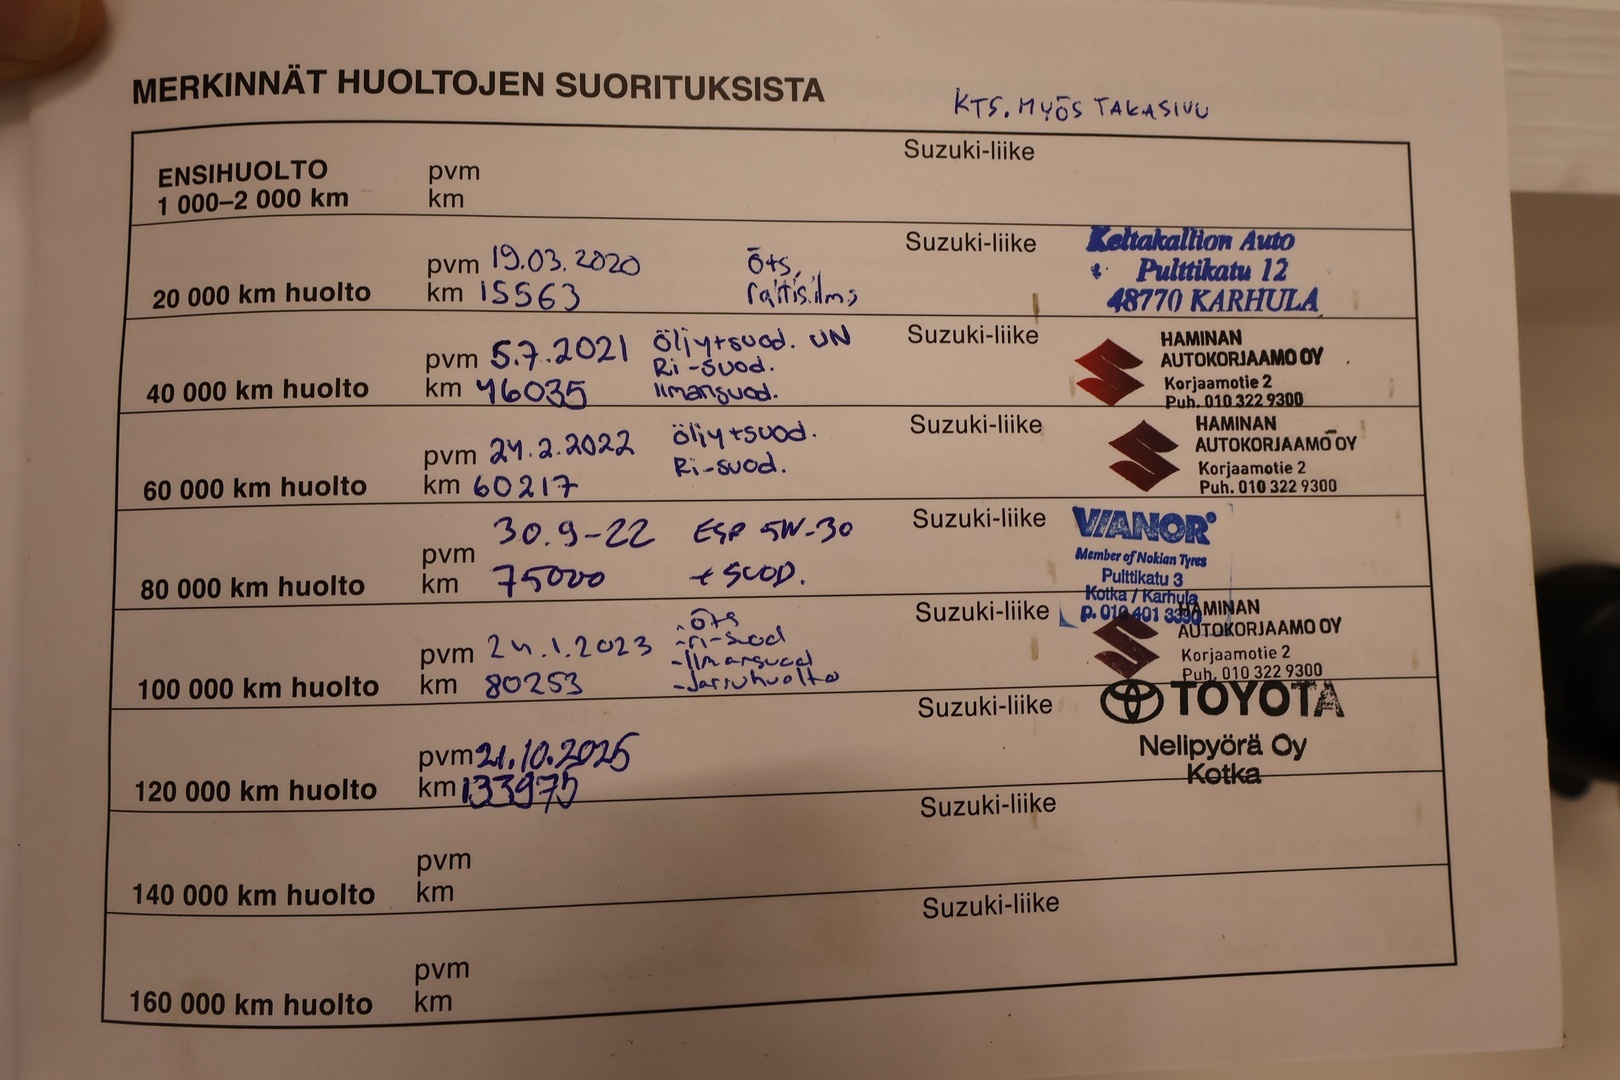 MERKINNÄT HUOLTOJEN SUORITUKSISTA
KTS. MYÖS TAKASIVU
ENSIHUOLTO
1 000–2 000 km
pvm
km
Suzuki-liike
20 000 km huolto
pvm 19.03.2020
km 15563
öts,
raitisilms
Suzuki-liike
Keltakallion Auto
Pulttikatu 12
48770 KARHULA
40 000 km huolto
pvm 5.7.2021
km 46035
Öljy+suod. UN
Ri-suod.
Ilmansuod.
Suzuki-liike
HAMINAN
AUTOKORJAAMO OY
Korjaamotie 2
Puh. 010 322 9300
60 000 km huolto
pvm 24.2.2022
km 60217
Öljy+suod.
Ri-suod.
Suzuki-liike
HAMINAN
AUTOKORJAAMO OY
Korjaamotie 2
Puh. 010 322 9300
80 000 km huolto
pvm 30.9-22
km 75000
ESP 5W-30
+ SUOD.
Suzuki-liike
VIANOR
Member of Nokian Tyres
Pulttikatu 3
Kotka / Karhula
p. 010 401 3390
100 000 km huolto
pvm 24.1.2023
km 80253
-öts
-ri-suod
-Ilmansuod
-Jarruhuolto
Suzuki-liike
HAMINAN
AUTOKORJAAMO OY
Korjaamotie 2
Puh. 010 322 9300
120 000 km huolto
pvm 21.10.2025
km 133975
Suzuki-liike
TOYOTA
Nelipyörä Oy
Kotka
140 000 km huolto
pvm
km
Suzuki-liike
160 000 km huolto
pvm
km
Suzuki-liike